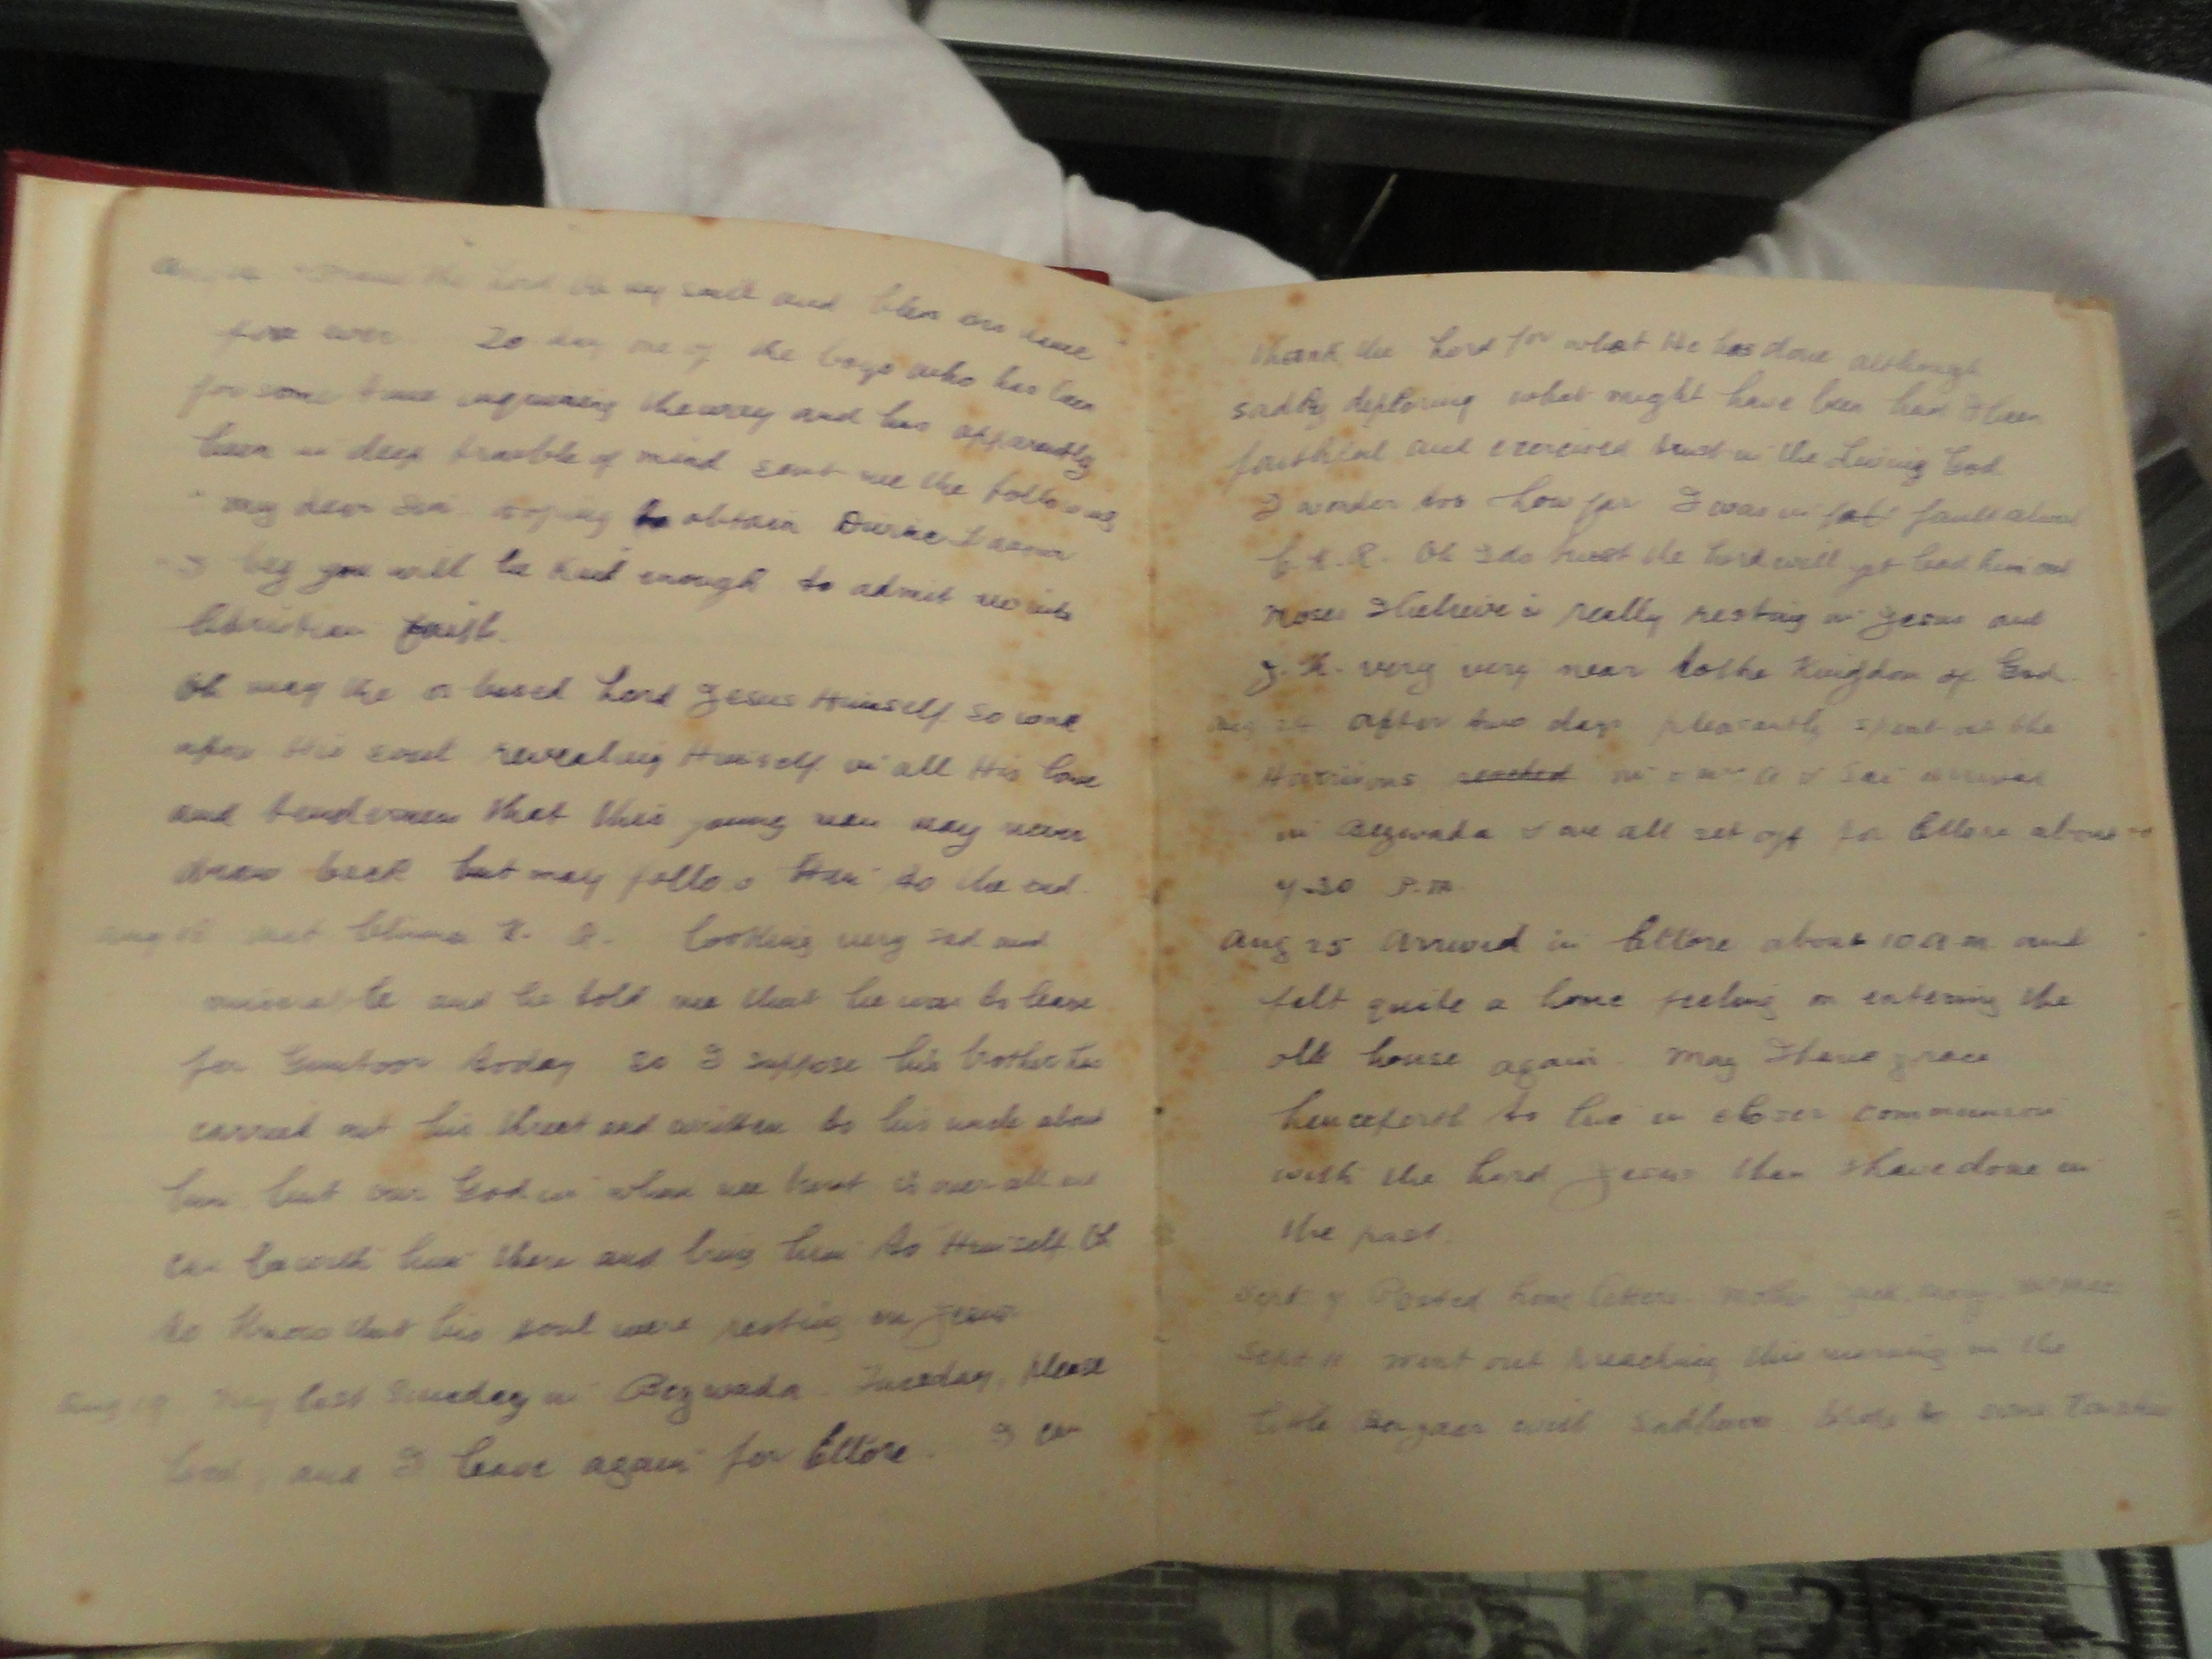 the Lord oh my soul and bless
for ever. To day one of the boys who has been
for some time inquiring the way and has apparently
been in deep trouble of mind sent me the following
" my dear Sir hoping to obtain Divine Favour
I beg you will be kind enough to admit me into
Christian faith.
Oh may the Lord Jesus Himself so work
upon this soul revealing Himself in all His love
and tenderness that this young man may never
draw back but may follow Him to the end.
Aug 16 met K. R. looking very sad and
miserable and he told me that he was to leave
for Guntoor today so I suppose his brother has
carried out his threat and written to his uncle about
him but our God in whom we trust is over all
can be with him there and bring him to Himself. Oh
to know that his soul were resting in Jesus
Aug 19 My last Sunday in Bezwada. Tuesday, please
God, and I leave again for Ellore. I can
thank the Lord for what He has done although
sadly deploring what might have been had I been
faithful and exercised trust in the Living God
I wonder too how far I was in fat fault about
C. K. R. Oh I do trust the Lord will yet lead him out
Moses I believe is really resting in Jesus and
J. K. very very near to the Kingdom of God.
Aug 24 After two days pleasantly spent at the
Harrisons reached arrived
in Bezwada & we all set off for Ellore about
4.30 P.M.
Aug 25 Arrived in Ellore about 10 A.M. and
felt quite a home feeling on entering the
old house again. May I have grace
henceforth to live in closer communion
with the Lord Jesus than I have done in
the past.
Sept 9 Posted home letters. Mother
Sept 11 Went out preaching this morning in the
little Bazaar with to some